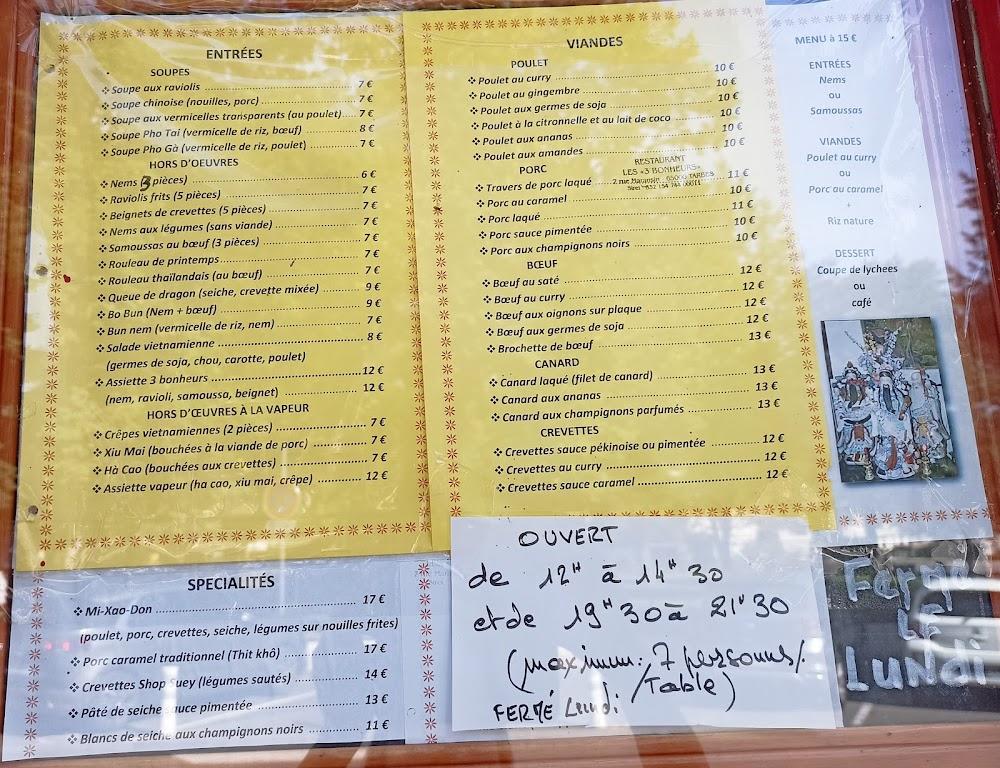 ENTRÉES
SOUPES
❖ Soupe aux raviolis ........ 7 €
❖ Soupe chinoise (nouilles, porc) ........ 7 €
❖ Soupe aux vermicelles transparents (au poulet) ........ 7 €
❖ Soupe Pho Tai (vermicelle de riz, bœuf) ........ 8 €
❖ Soupe Pho Gà (vermicelle de riz, poulet) ........ 7 €
HORS D'OEUVRES
❖ Nems (3 pièces) ........ 6 €
❖ Raviolis frits (5 pièces) ........ 7 €
❖ Beignets de crevettes (5 pièces) ........ 7 €
❖ Nems aux légumes (sans viande) ........ 7 €
❖ Samoussas au bœuf (3 pièces) ........ 7 €
❖ Rouleau de printemps ........ 7 €
❖ Rouleau thaïlandais (au bœuf) ........ 7 €
❖ Queue de dragon (seiche, crevette mixée) ........ 9 €
❖ Bo Bun (Nem + bœuf) ........ 9 €
❖ Bun nem (vermicelle de riz, nem) ........ 7 €
❖ Salade vietnamienne ........ 8 €
(germes de soja, chou, carotte, poulet)
❖ Assiette 3 bonheurs ........ 12 €
(nem, ravioli, samoussa, beignet) ........ 12 €
HORS D'ŒUVRES À LA VAPEUR
❖ Crêpes vietnamiennes (2 pièces) ........ 7 €
❖ Xiu Mai (bouchées à la viande de porc) ........ 7 €
❖ Hà Cao (bouchées aux crevettes) ........ 7 €
❖ Assiette vapeur (ha cao, xiu mai, crêpe) ........ 12 €
SPECIALITÉS
❖ Mi-Xao-Don ........ 17 €
(poulet, porc, crevettes, seiche, légumes sur nouilles frites)
❖ Porc caramel traditionnel (Thit khô) ........ 17 €
❖ Crevettes Shop Suey (légumes sautés) ........ 14 €
❖ Pâté de seiche sauce pimentée ........ 13 €
❖ Blancs de seiche aux champignons noirs ........ 11 €
VIANDES
POULET
❖ Poulet au curry ........ 10 €
❖ Poulet au gingembre ........ 10 €
❖ Poulet aux germes de soja ........ 10 €
❖ Poulet à la citronnelle et au lait de coco ........ 10 €
❖ Poulet aux ananas ........ 10 €
❖ Poulet aux amandes ........ 10 €
RESTAURANT
LES «3 BONHEURS»
PORC
❖ Travers de porc laqué ........ 11 €
❖ Porc au caramel ........ 10 €
❖ Porc laqué ........ 11 €
❖ Porc sauce pimentée ........ 10 €
❖ Porc aux champignons noirs ........ 10 €
BŒUF
❖ Bœuf au saté ........ 12 €
❖ Bœuf au curry ........ 12 €
❖ Bœuf aux oignons sur plaque ........ 12 €
❖ Bœuf aux germes de soja ........ 12 €
❖ Brochette de bœuf ........ 13 €
CANARD
❖ Canard laqué (filet de canard) ........ 13 €
❖ Canard aux ananas ........ 13 €
❖ Canard aux champignons parfumés ........ 13 €
CREVETTES
❖ Crevettes sauce pékinoise ou pimentée ........ 12 €
❖ Crevettes au curry ........ 12 €
❖ Crevettes sauce caramel ........ 12 €
MENU à 15 €
ENTRÉES
Nems
ou
Samoussas
VIANDES
Poulet au curry
ou
Porc au caramel
+
Riz nature
DESSERT
Coupe de lychees
ou
café
OUVERT
de 12H à 14H30
et de 19H30 à 21H30
(maximum: 7 personnes/
/Table)
FERMÉ Lundi
Fermé
LE
LUNDi